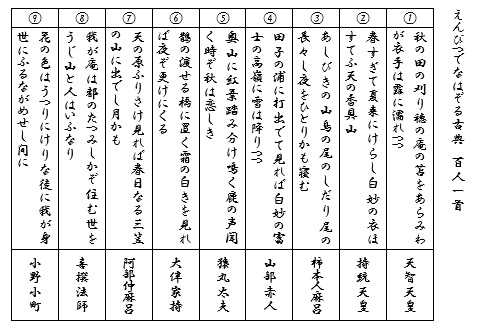 えんぴつでなぞる古典　百人一首
①
秋の田の刈り穂の庵の苫をあらみわ
が衣手は露に濡れつつ
天智天皇
②
春すぎて夏来にけらし白妙の衣ほ
すてふ天の香具山
持統天皇
③
あしびきの山鳥の尾のしだり尾の
長々し夜をひとりかも寝む
柿本人麻呂
④
田子の浦に打出でて見れば白妙の富
士の高嶺に雪は降りつつ
山部赤人
⑤
奥山に紅葉踏み分け鳴く鹿の声聞
く時ぞ秋は悲しき
猿丸太夫
⑥
鵲の渡せる橋に置く霜の白きを見れ
ば夜ぞ更けにくる
大伴家持
⑦
天の原ふりさけ見れば春日なる三笠
の山に出でし月かも
阿部仲麻呂
⑧
我が庵は都のたつみしかぞ住む世を
うじ山と人はいふなり
喜撰法師
⑨
花の色はうつりにけりな徒に我が身
世にふるながめせし間に
小野小町